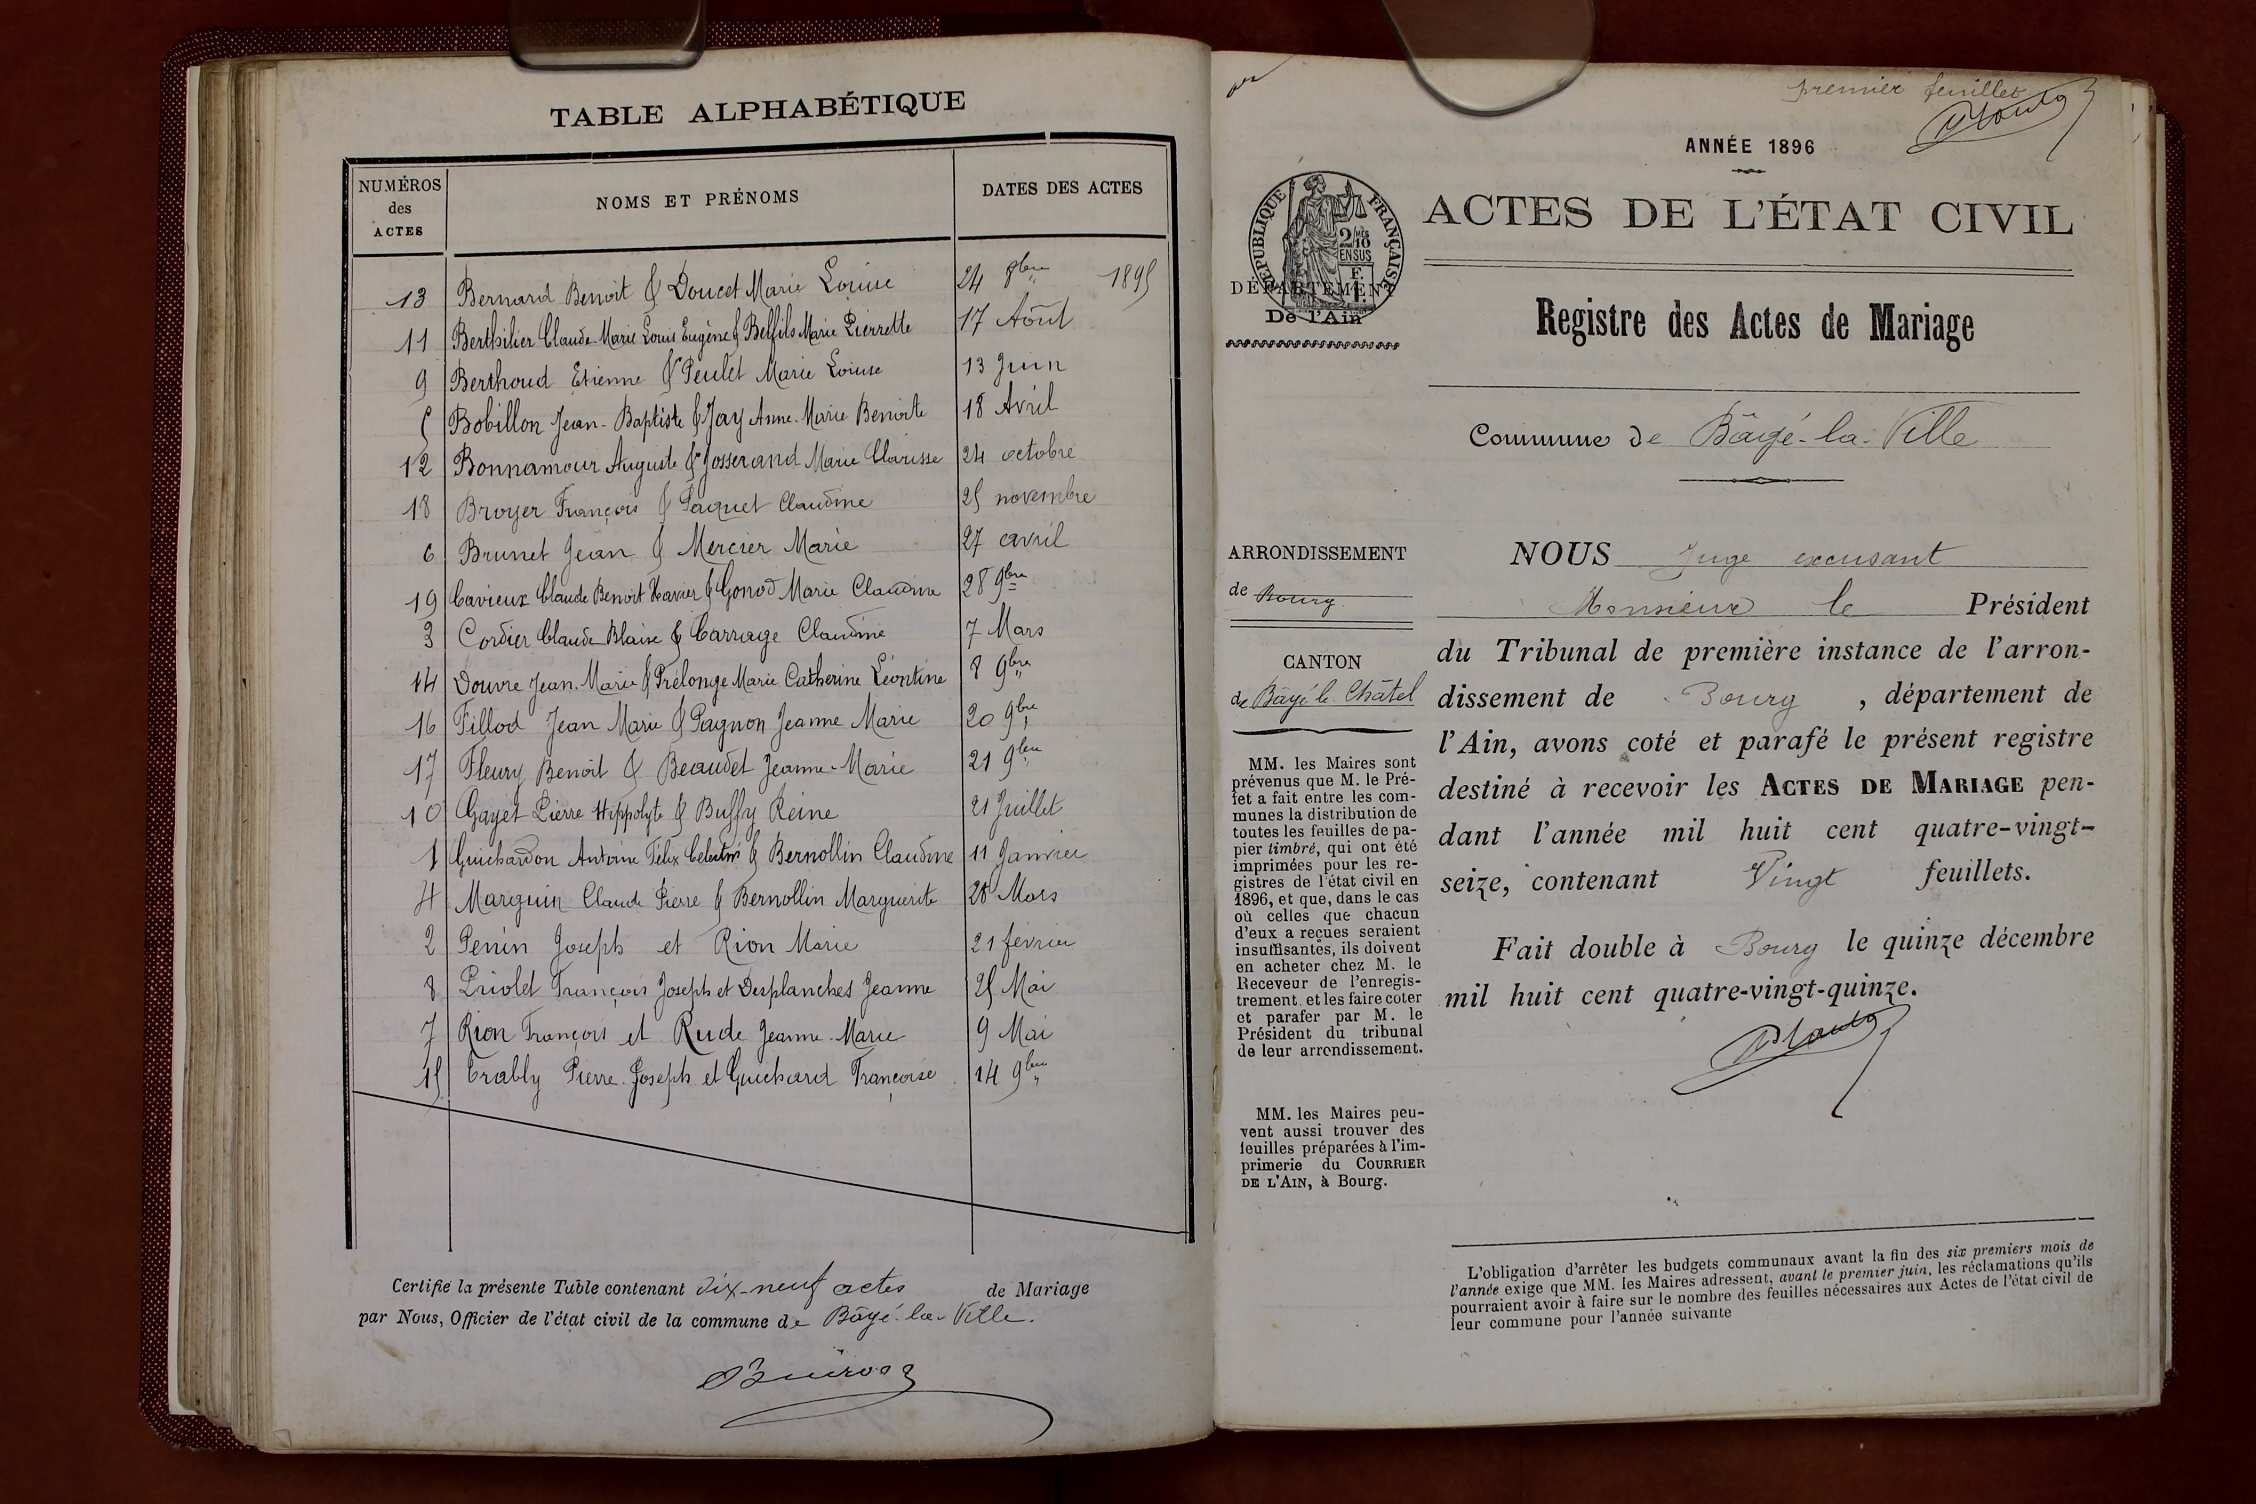 TABLE ALPHABÉTIQUE
NUMÉROS des ACTES
NOMS ET PRÉNOMS
DATES DES ACTES
13 Bernard Benoit & Doucet Marie Louise 24 8bre 1895
11 Berthilier Claude Marie Louis Eugène & Belfils Marie Pierrette 17 Aôut
9 Berthoud Etienne & Peulet Marie Louise 13 Juin
5 Bobillon Jean-Baptiste & Jay Anne-Marie Benoite 18 Avril
12 Bonnamour Auguste & Josserand Marie Clarisse 24 octobre
18 Broyer François & Paquet Claudine 25 novembre
6 Brunet Jean & Mercier Marie 27 avril
19 Cavieux Claude Benoit Xavier & Gonod Marie Claudine 28 9bre
3 Cordier Claude Blaise & Carriage Claudine 7 Mars
14 Douvre Jean-Marie & Prélonge Marie Catherine Léontine 8 9bre
16 Fillod Jean Marie & Pagnon Jeanne Marie 20 9bre
17 Fleury Benoit & Beaudet Jeanne-Marie 21 9bre
10 Gayet Pierre Hippolyte & Buffy Reine 21 Juillet
1 Guichardon Antoine Félix Celestin & Bernollin Claudine 11 Janvier
4 Marguin Claude Pierre & Bernollin Marguerite 28 Mars
2 Penin Joseph et Rion Marie 21 février
8 Priolet François Joseph et Desplanches Jeanne 25 Mai
7 Rion François et Rude Jeanne-Marie 9 Mai
15 Trably Pierre-Joseph et Guichard Françoise 14 9bre
Certifié la présente Table contenant dix-neuf actes de Mariage
par Nous, Officier de l'état civil de la commune de Bâgé-la-Ville.
premier feuillet
ANNÉE 1896
RÉPUBLIQUE FRANÇAISE
2/10 EN SUS
DÉPARTEMENT
De l'Ain
ACTES DE L'ÉTAT CIVIL
Registre des Actes de Mariage
Commune de Bâgé-la-Ville
ARRONDISSEMENT
de Bourg
CANTON
de Bâgé-le-Châtel
MM. les Maires sont
prévenus que M. le Pré-
fet a fait entre les com-
munes la distribution de
toutes les feuilles de pa-
pier timbré, qui ont été
imprimées pour les re-
gistres de l'état civil en
1896, et que, dans le cas
où celles que chacun
d'eux a reçues seraient
insuffisantes, ils doivent
en acheter chez M. le
Receveur de l'enregis-
trement et les faire coter
et parafer par M. le
Président du tribunal
de leur arrondissement.
MM. les Maires peu-
vent aussi trouver des
feuilles préparées à l'im-
primerie du COURRIER
DE L'AIN, à Bourg.
NOUS Juge excusant
Monsieur le Président
du Tribunal de première instance de l'arron-
dissement de Bourg, département de
l'Ain, avons coté et parafé le présent registre
destiné à recevoir les ACTES DE MARIAGE pen-
dant l'année mil huit cent quatre-vingt-
seize, contenant Vingt feuillets.
Fait double à Bourg le quinze décembre
mil huit cent quatre-vingt-quinze.
L'obligation d'arrêter les budgets communaux avant la fin des six premiers mois de
l'année exige que MM. les Maires adressent, avant le premier juin, les réclamations qu'ils
pourraient avoir à faire sur le nombre des feuilles nécessaires aux Actes de l'état civil de
leur commune pour l'année suivante